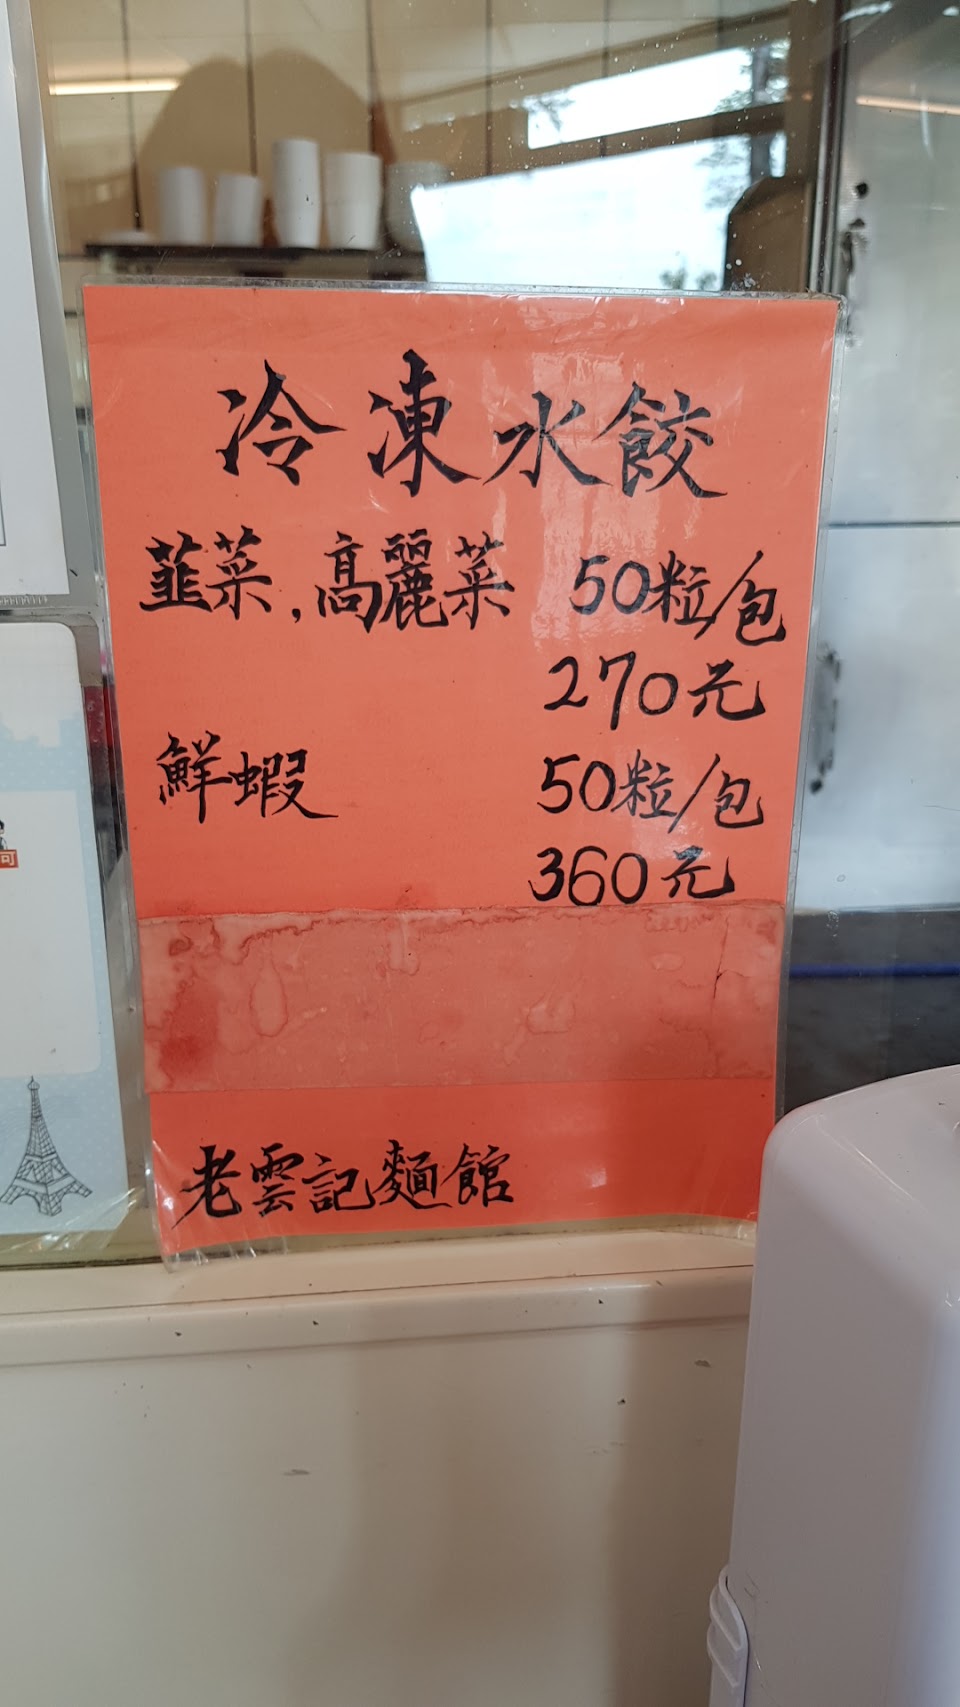 冷凍水餃
韮菜,高麗菜 50粒/包
270元
鮮蝦 50粒/包
360元
老雲記麵館
可